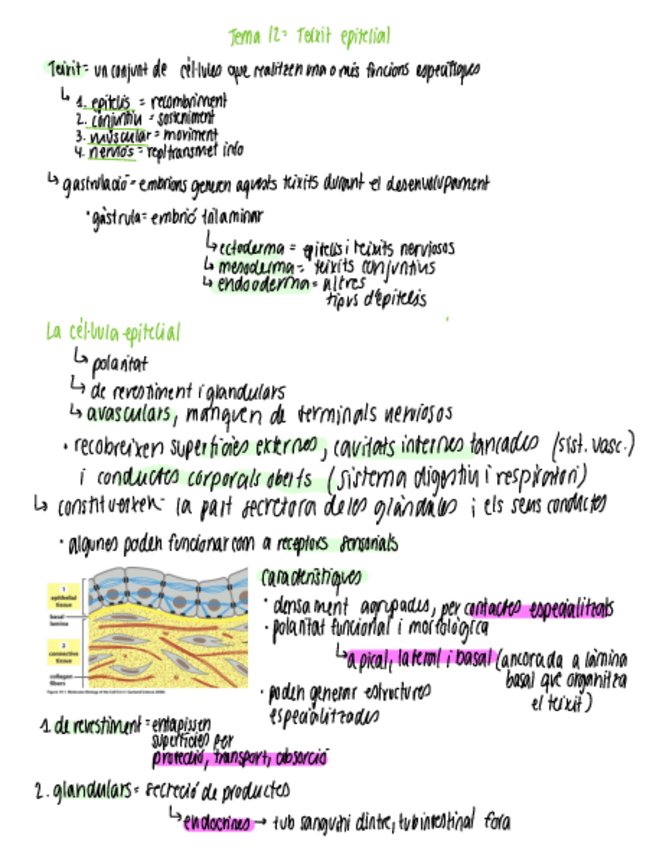 Tema 12= Teixit epitelial
Teixit= un conjunt de cèl·lules que realitzen una o més funcions específiques
↳ 1. epitelis = recobriment
2. conjuntiu = sosteniment
3. muscular = moviment
4. nerviós = rep/transmet info
↳ gastrulació = embrions generen aquests teixits durant el desenvolupament
· gàstrula= embrió trilaminar
↳ ectoderma = epitelis i teixits nerviosos
↳ mesoderma= teixits conjuntius
↳ endooderma= altres
tipus d'epitelis
La cèl·lula epitelial
↳ polaritat
↳ de revestiment i glandulars
↳ avasculars, manquen de terminals nerviosos
· recobreixen superfícies externes, cavitats internes tancades (sist. vasc.)
i conductes corporals oberts (sistema digestiu i respiratori)
↳ constitueixen la part secretora de les glàndules i els seus conductes
· algunes poden funcionar com a receptors sensorials
1
epithelial
tissue
basal
lamina
2
connective
tissue
collagen
fibers
Característiques
· densament agrupades, per contactes especialitzats
· polaritat funcional i morfològica
↳ apical, lateral i basal (ancorada a làmina
basal que organitza
el teixit)
· poden generar estructures
especialitzades
1. de revestiment = entapissen
superfícies per
protecció, transport, absorció
2. glandulars = secreció de productes
↳ endocrines → tub sanguini dintre, tub intestinal fora